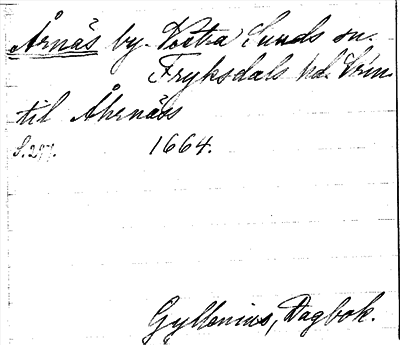 Årnäs by. Västra Sunds sn.
Fryksdals hd. Vrm.
til Åhrnäss
S. 277. 1664.
Gyllenius, Dagbok.